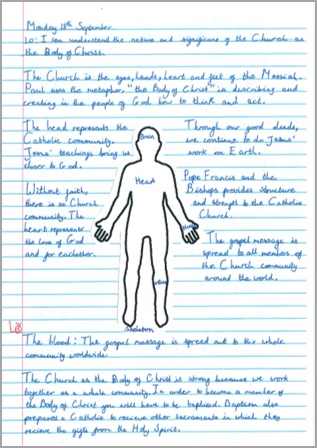 Monday 18th September
LO: I can understand the nature and significance of the Church as
the Body of Christ.
The Church is the eyes, hands, heart and feet of the Messiah.
Paul uses the metaphor, "the Body of Christ" in describing and
creating in the people of God how to think and act.
The head represents the
Catholic community.
Jesus' teachings bring us
closer to God.
Through our good deeds,
we continue to do Jesus'
work on Earth.
Brain
Heart
Without faith,
there is no Church
community. The
heart represents
the love of God
and for eachother.
Pope Francis and the
Bishops provides structure
and strength to the Catholic
Church.
Hands
The gospel message is
spread to all members of
the Church community
around the world.
Skeleton
The blood: The gospel message is spread out to the whole
community worldwide.
The Church as the Body of Christ is strong because we work
together as a whole community. In order to become a member of
the Body of Christ you will have to be baptised. Baptism also
prepares a Catholic to recieve other Sacraments in which they
recieve the gifts from the Holy Spirit.